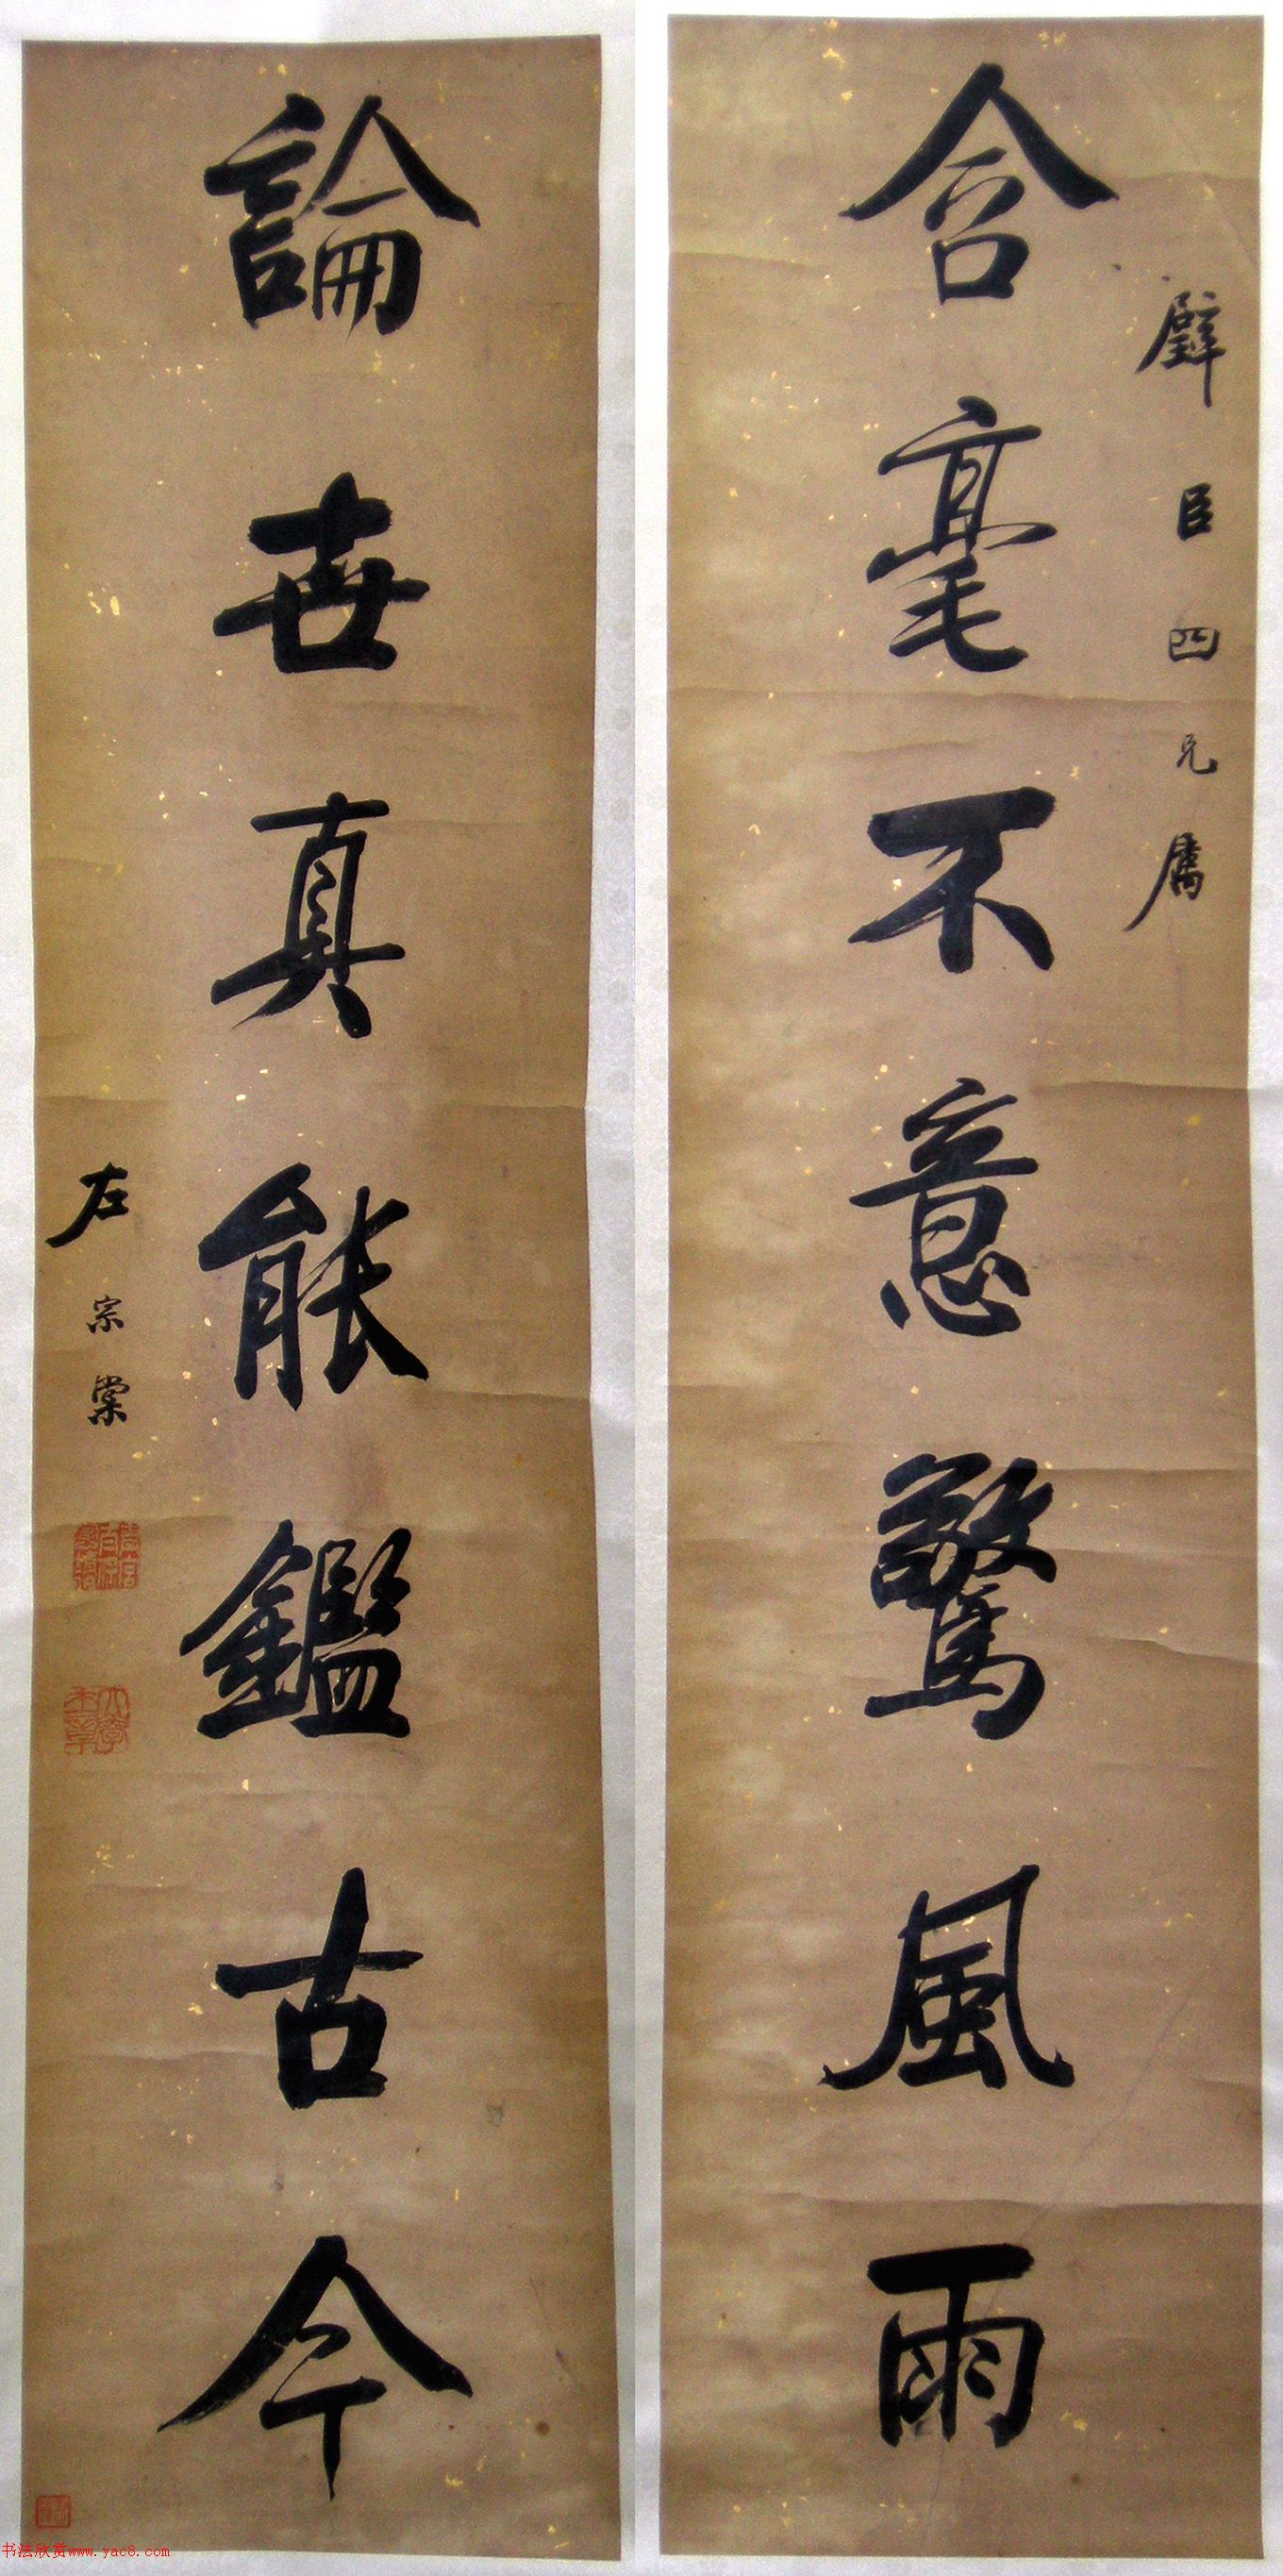 璧臣四兄屬
含毫不意驚風雨
論世真能鑑古今
左宗棠
大學士章
书法欣赏www.yac8.com